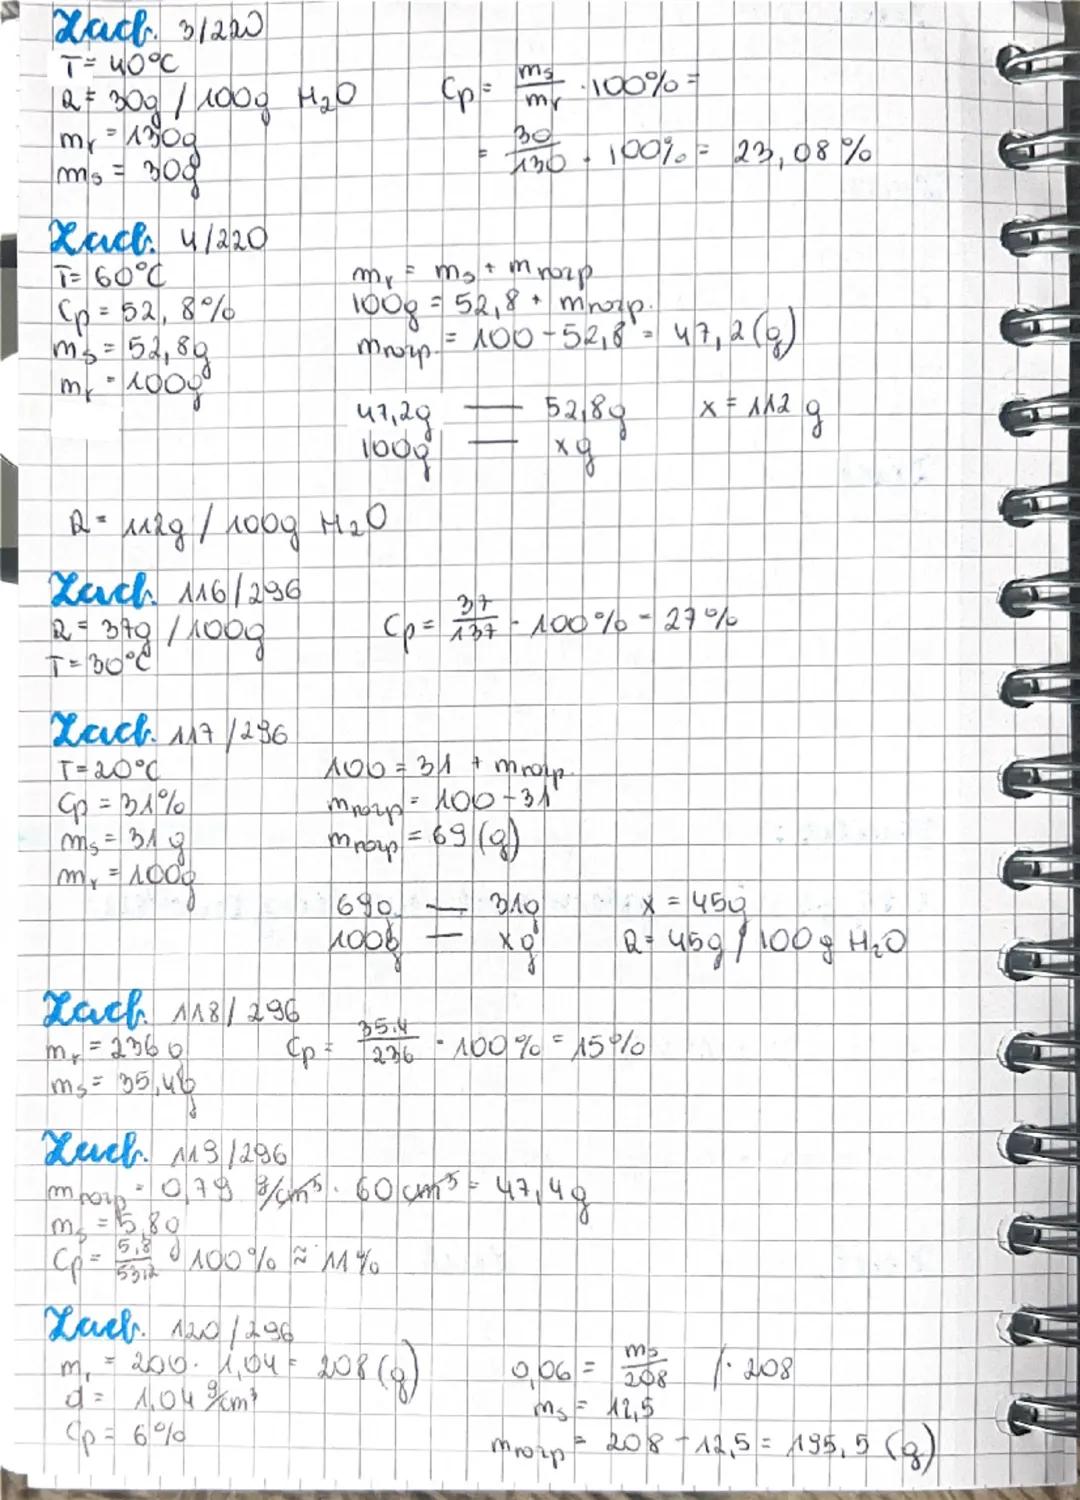 Zad. 3/220
T = 40°C
R = 30g / 100g H₂O
mᵣ = 130g
mₛ = 30g
Cp = mₛ/mᵣ · 100% =
= 30/130 · 100% = 23,08%
Zad. 4/220
T = 60°C
Cp = 52,8%
mₛ = 52,8g
mᵣ = 100g
mᵣ = mₛ + m rozp
100g = 52,8 + m rozp.
m rozp. = 100 - 52,8 = 47,2 (g)
47,2g — 52,8g x = 112 g
100g — xg
R = 112g / 100g H₂O
Zad. 116/296
R = 37g / 100g
T = 30°C
Cp = 37/137 · 100% = 27%
Zad. 117/296
T = 20°C
Cp = 31%
mₛ = 31 g
mᵣ = 100g
100 = 31 + m rozp.
m rozp = 100 - 31
m rozp = 69 (g)
69g — 31g x = 45g
100g — xg R = 45g / 100 g H₂O
Zad. 118/296
mᵣ = 236 g
mₛ = 35,4g
Cp = 35.4/236 · 100% = 15%
Zad. 119/296
m rozp = 0,79 g/cm³ · 60 cm³ = 47,4g
mₛ = 5,8g
Cp = 5,8/53,2 · 100% ≈ 11%
Zad. 120/296
mᵣ = 200 · 1,04 = 208 (g)
d = 1,04 g/cm³
Cp = 6%
0,06 = mₛ/208 /· 208
mₛ = 12,5
m rozp = 208 - 12,5 = 195,5 (g)